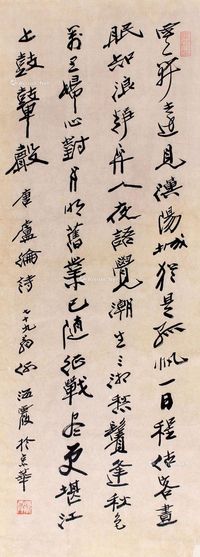 雲開遠見漢陽城猶是孤帆一日程估客晝
眠知浪靜舟人夜語覺潮生三湘愁鬢逢秋色
萬里歸心對月明舊業已隨征戰盡更堪江
上鼓鼙聲 唐盧綸詩 七十九翁 霞於京華